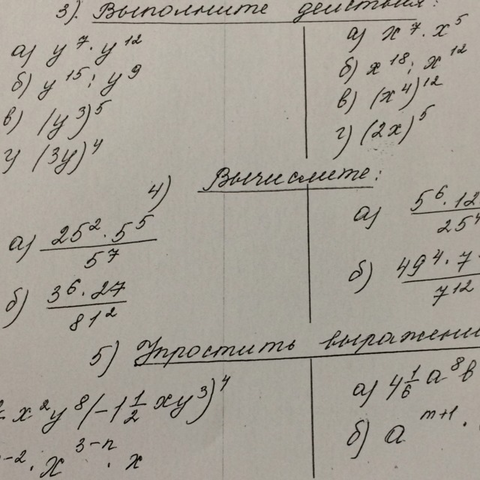 3). Выполните действия:
а) y⁷ · y¹²
б) y¹⁵ : y⁹
в) (y³)⁵
г) (3y)⁴
а) x⁷ · x⁵
б) x¹⁸ : x¹²
в) (x⁴)¹²
г) (2x)⁵
4) Вычислите:
а) 25² · 5⁵ / 5⁷
б) 3⁶ · 27 / 81²
а) 5⁶ · 12 / 25⁴
б) 49⁴ · 7 / 7¹²
5) Упростить выражени
x²y⁸(-1 1/2 xy³)⁴
⁻² · x³⁻ⁿ · x
а) 4 1/6 a⁸b
б) aᵐ⁺¹ ·